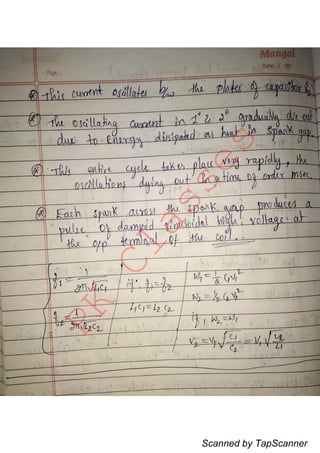 Mangal
Page:
Date: / /20
This current oscillates b/w the plates of capacitor C₁
The oscillating current in 1° & 2° gradually die out
due to energy dissipated as heat in spark gap.
This entire cycle takes place very rapidly, the
oscillations dying out in a time of order msec.
Each spark across the spark gap produces a
pulse of damped sinusoidal high voltage at
the o/p terminal of the coil.
f₁ = 1/2π√L₁C₁
f₂ = 1/2π√L₂C₂
if f₁ = f₂
L₁C₁ = L₂C₂
W₁ = 1/2 C₁V₁²
W₂ = 1/2 C₂V₂²
if, W₂ = W₁
V₂ = V₁ √C₁/C₂ = V₁ √L₂/L₁
RK Classes
Scanned by TapScanner